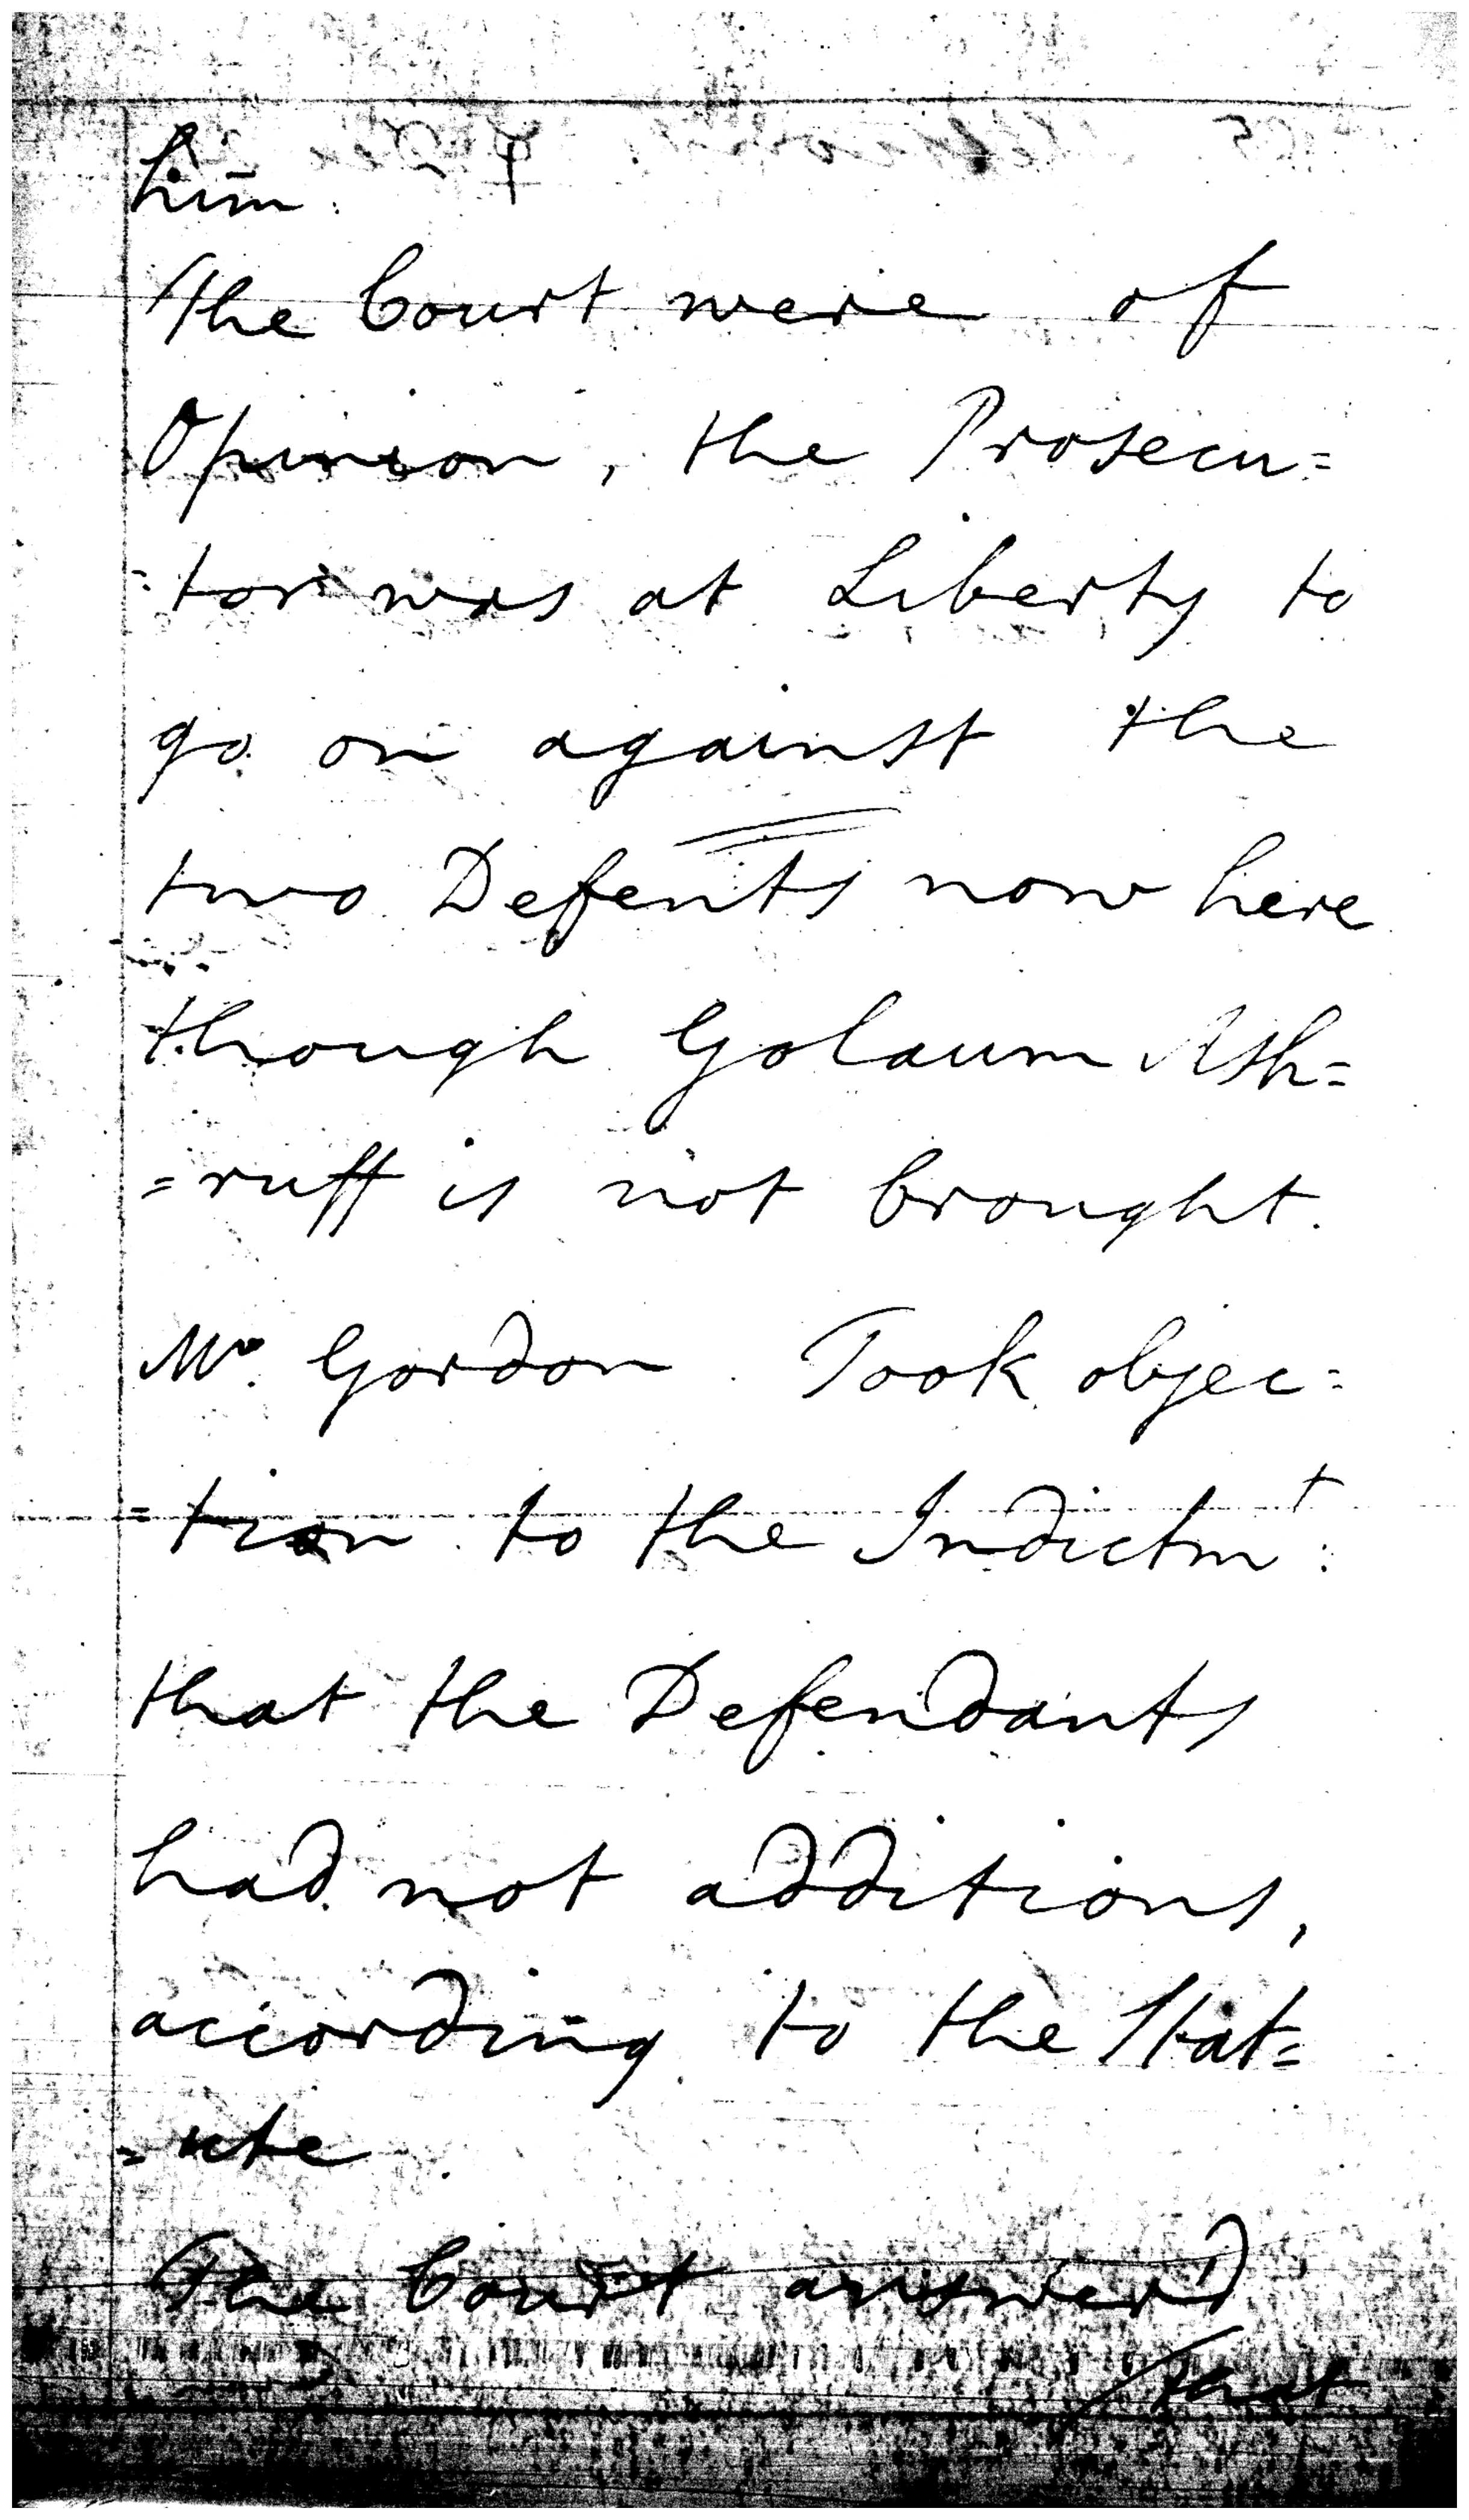 him.
The Court were of
Opinion, the Prosecu=
=tor was at Liberty to
go on against the
two Defents now here
though Golaum Ash=
=ruff is not brought.
Mr. Gordon. Took objec=
=tion to the Indictmt.
that the Defendants
had not additions,
according to the Stat=
=ute.
The Court answerd
that